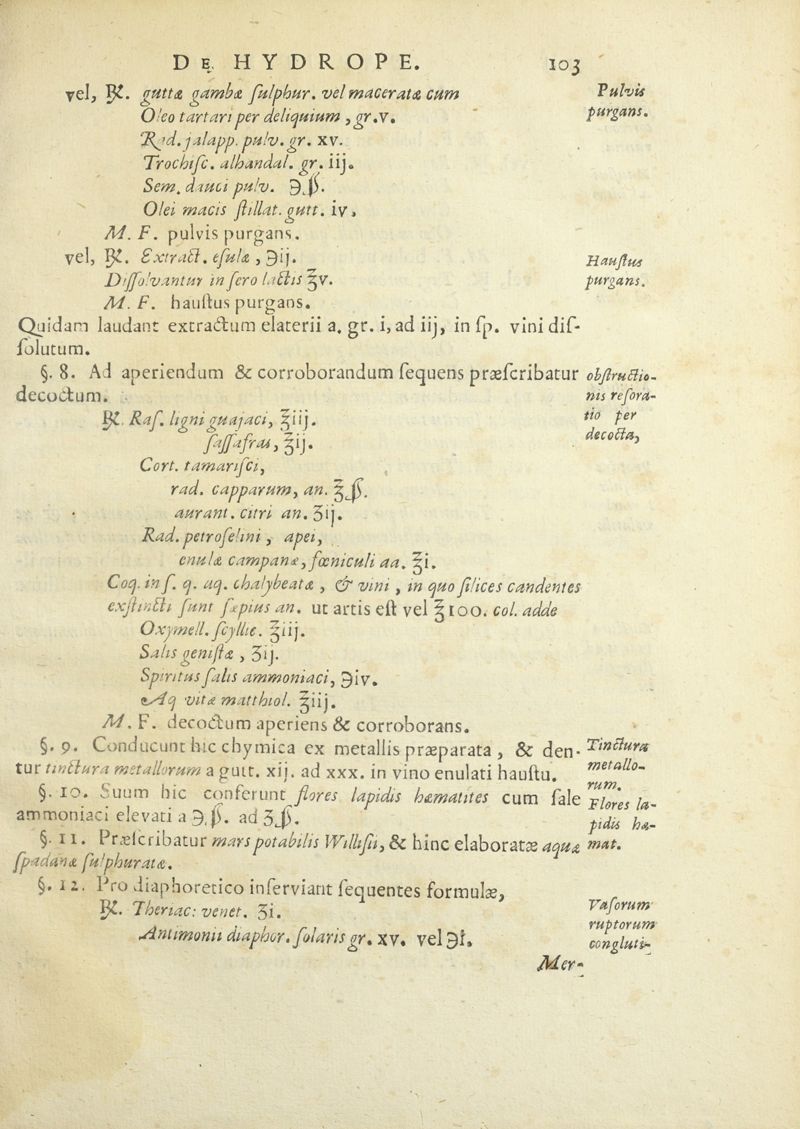 DE HYDROPE. 103
vel, ℞. guttæ gambæ ſulphur. vel maceratæ cum
Oleo tartari per deliquium, gr. v.
Rad. jalapp. pulv. gr. xv.
Trochiſc. alhandal. gr. iij.
Sem. dauci pulv. ℈.ß.
Olei macis ſtillat. gutt. iv,
M. F. pulvis purgans.
Pulvis
purgans.
vel, ℞. Extract. eſulæ, ℈ij.
Diſſolvantur in ſero lactis ℥v.
M. F. hauſtus purgans.
Hauſtus
purgans.
Quidam laudant extractum elaterii a. gr. i, ad iij, in ſp. vini diſ-
ſolutum.
§. 8. Ad aperiendum & corroborandum ſequens præſcribatur
decoctum.
obſtructio-
nis reſora-
tio per
decocta,
℞. Raſ. ligni guajaci, ℥iij.
ſaſſafras, ℥ij.
Cort. tamariſci,
rad. capparum, an. ℥ß.
aurant. citri an. ʒij.
Rad. petroſelini, apei,
enulæ campanæ, fœniculi aa. ℥i.
Coq. in ſ. q. aq. chalybeatæ, & vini, in quo ſilices candentes
exſtincti ſunt ſæpius an. ut artis eſt vel ℥100. col. adde
Oxymell. ſcyllit. ℥iij.
Salis geniſtæ, ʒij.
Spiritus ſalis ammoniaci, ℈iv.
Aq vitæ matthiol. ℥iij.
M. F. decoctum aperiens & corroborans.
§. 9. Conducunt hic chymica ex metallis præparata, & den-
tur tinctura metallorum a gutt. xij. ad xxx. in vino enulati hauſtu.
Tinctura
metallo-
rum.
§. 10. Suum hic conferunt flores lapidis hæmatites cum ſale
ammoniaci elevati a ℈.ß. ad ʒß.
Flores la-
pidis hæ-
mat.
§. 11. Præſcribatur mars potabilis Willisii, & hinc elaboratæ aquæ
ſpadanæ ſulphuratæ.
§. 12. Pro diaphoretico inſerviant ſequentes formulæ,
℞. Theriac: venet. ʒi.
Antimonii diaphor. ſolaris gr. xv. vel ℈i.
Vaſorum
ruptorum
congluti-
Mer-